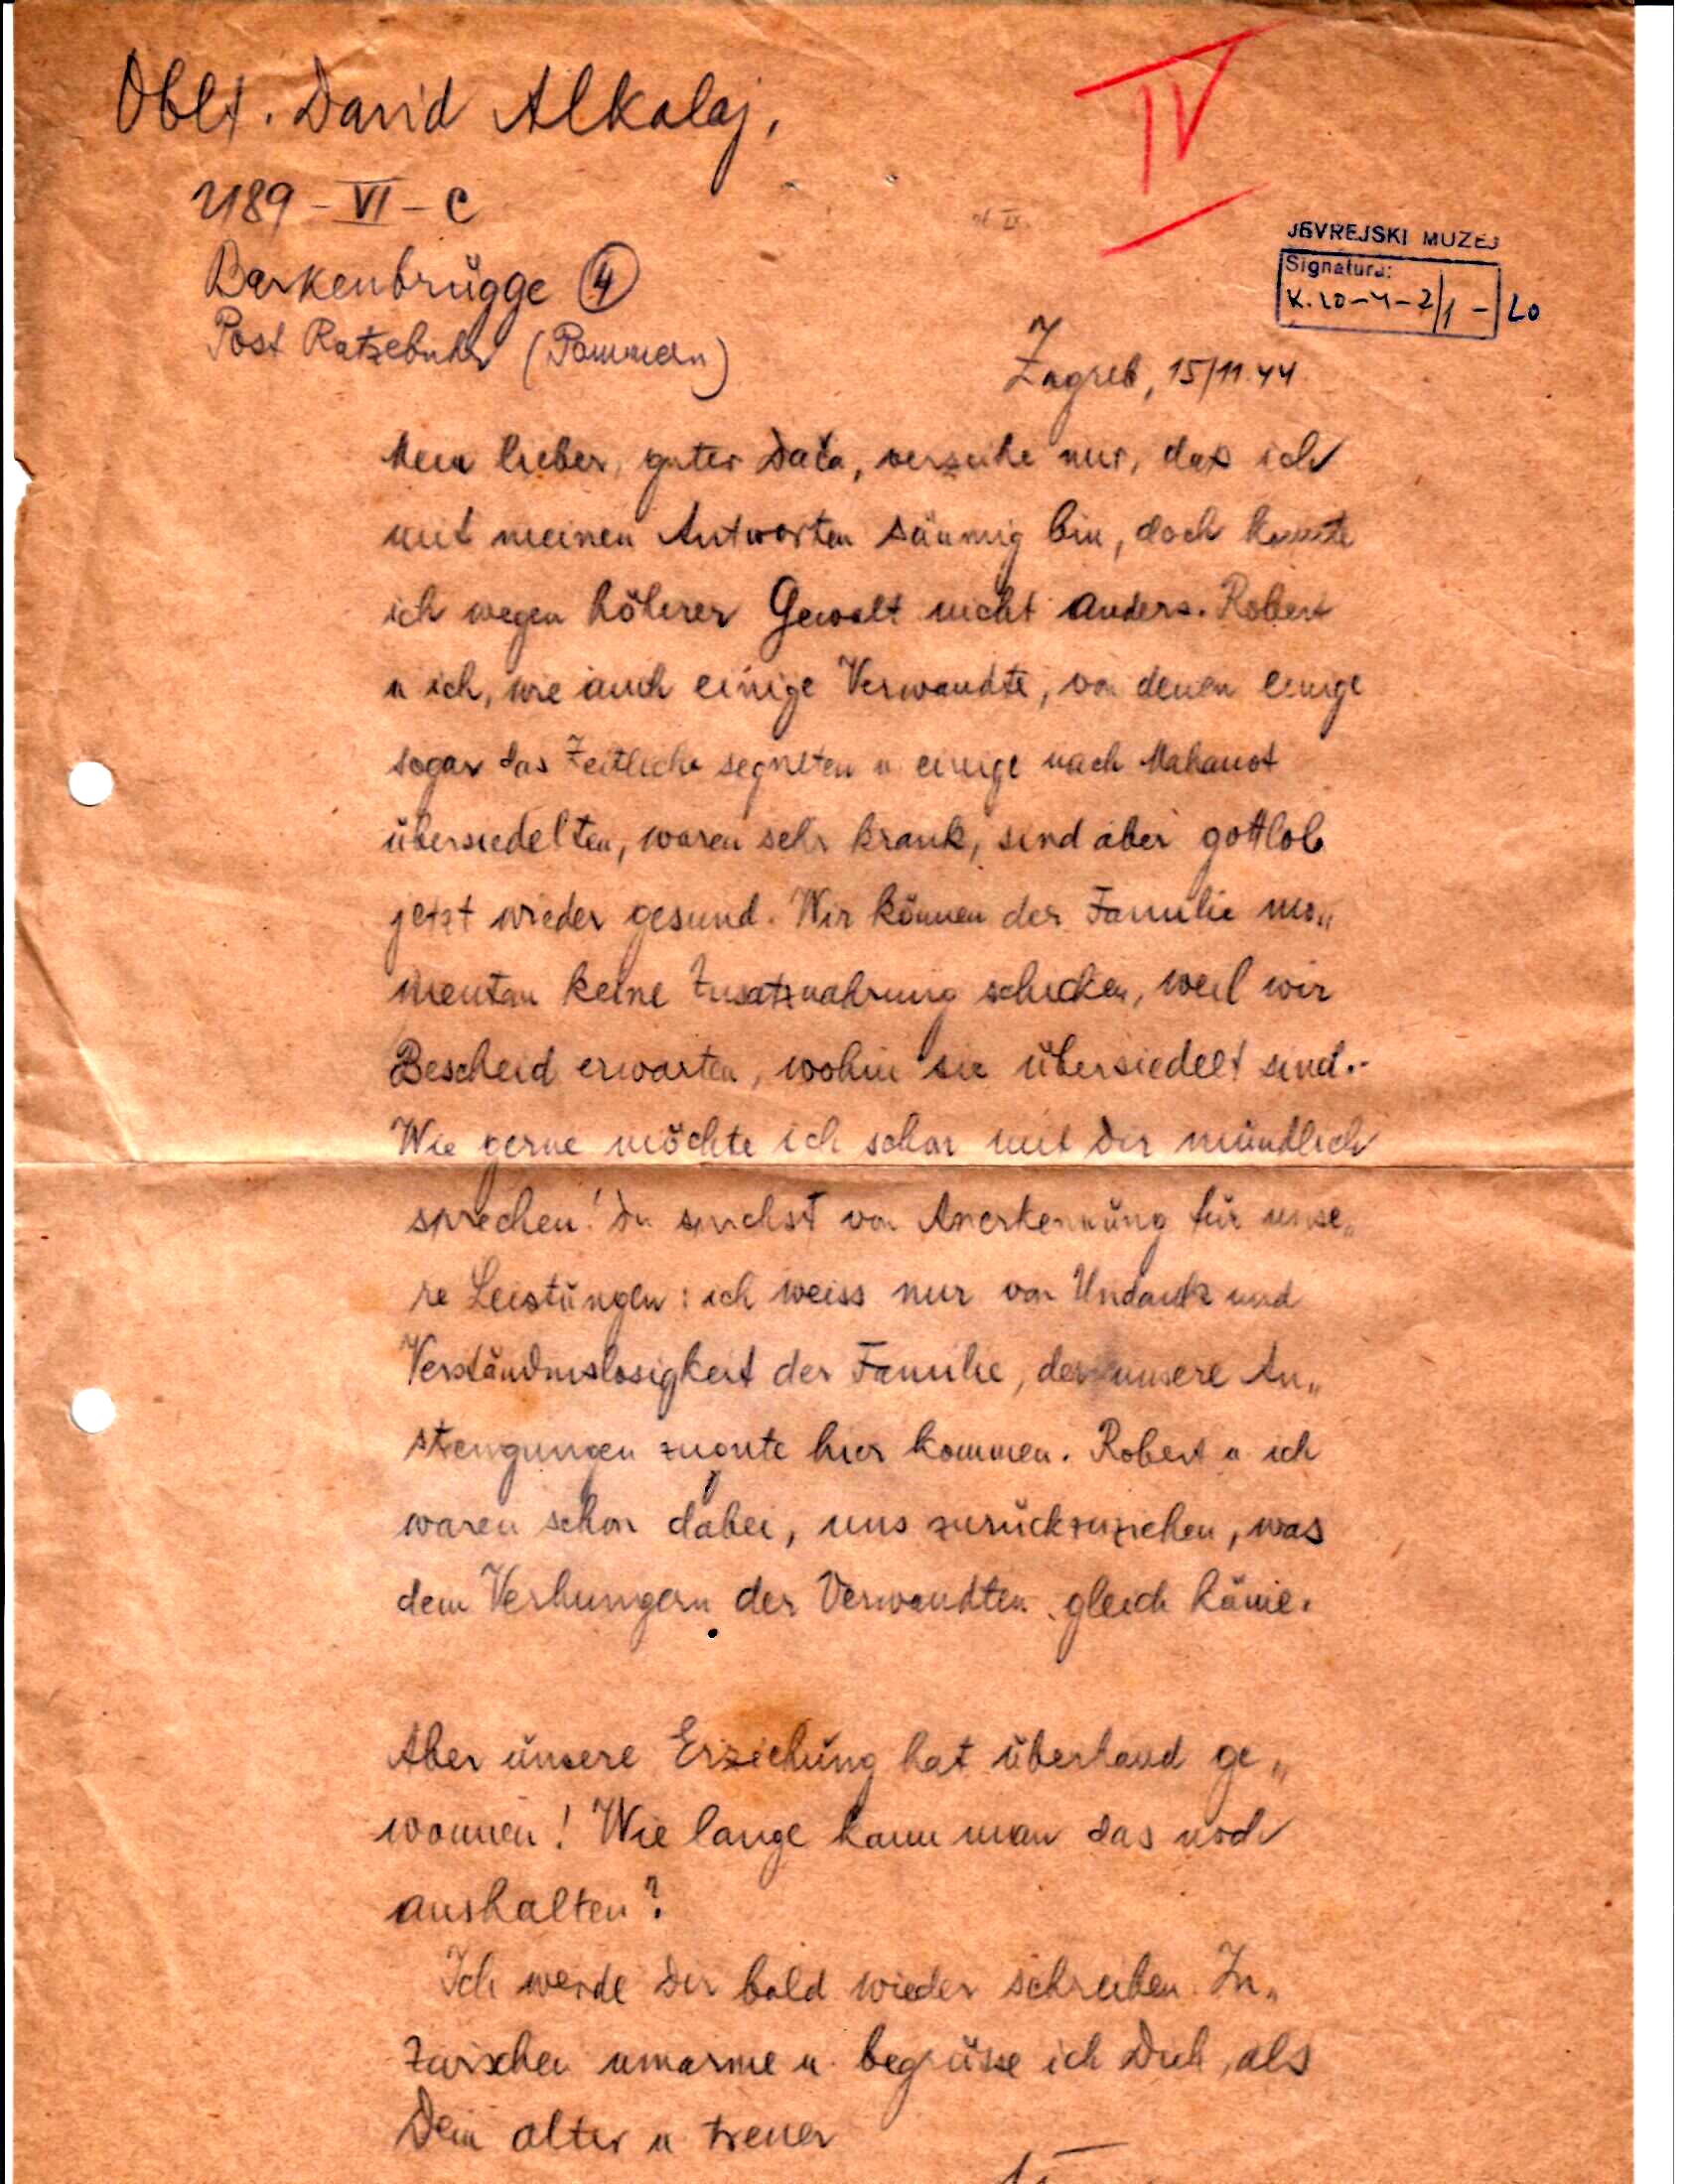 Oblt. David Alkalaj,
IV
2189 - VI - C
JEVREJSKI MUZEJ
Signatura:
K. 20-4-2/1 - 20
Barkenbrügge 4
Post Ratzebuhr (Pommern)
Zagreb, 15/11.44.
Mein lieber, guter Dača, verzeihe nur, dass ich
mit meinen Antworten säumig bin, doch konnte
ich wegen höherer Gewalt nicht anders. Robert
u ich, wie auch einige Verwandte, von denen einige
sogar das Zeitliche segneten u einige nach Mahanot
übersiedelten, waren sehr krank, sind aber gottlob
jetzt wieder gesund. Wir können der Familie mo„
mentan keine Zusatznahrung schicken, weil wir
Bescheid erwarten, wohin sie übersiedelt sind.-
Wie gerne möchte ich schon mit Dir mündlich
sprechen! Du sprichst von Anerkennung für unse„
re Leistungen: ich weiss nur von Undank und
Verständnislosigkeit der Familie, der unsere An„
strengungen zugute hier kommen. Robert u ich
waren schon dabei, uns zurückzuziehen, was
dem Verhungern der Verwandten gleich käme.
Aber unsere Erziehung hat überhand ge„
wonnen! Wie lange kann man das noch
aushalten?
Ich werde Dir bald wieder schreiben. In„
zwischen umarme u. begrüsse ich Dich, als
Dein alter u treuer